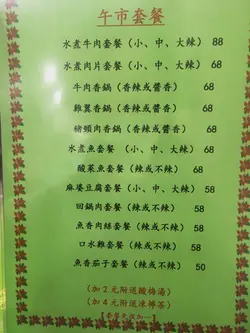 午市套餐
水煮牛肉套餐（小、中、大辣） 88
水煮肉片套餐（小、中、大辣） 68
牛肉香鍋（香辣或醬香） 68
雞煲香鍋（香辣或醬香） 68
豬頸肉香鍋（香辣或醬香） 68
水煮魚套餐（小、中、大辣） 68
酸菜魚套餐（辣或不辣） 68
麻婆豆腐套餐（小、中、大辣） 58
回鍋肉套餐（辣或不辣） 58
魚香肉絲套餐（辣或不辣） 58
口水雞套餐（辣或不辣） 58
魚香茄子套餐（辣或不辣） 50
（加2元附送酸梅湯）
（加4元附送凍檸茶）